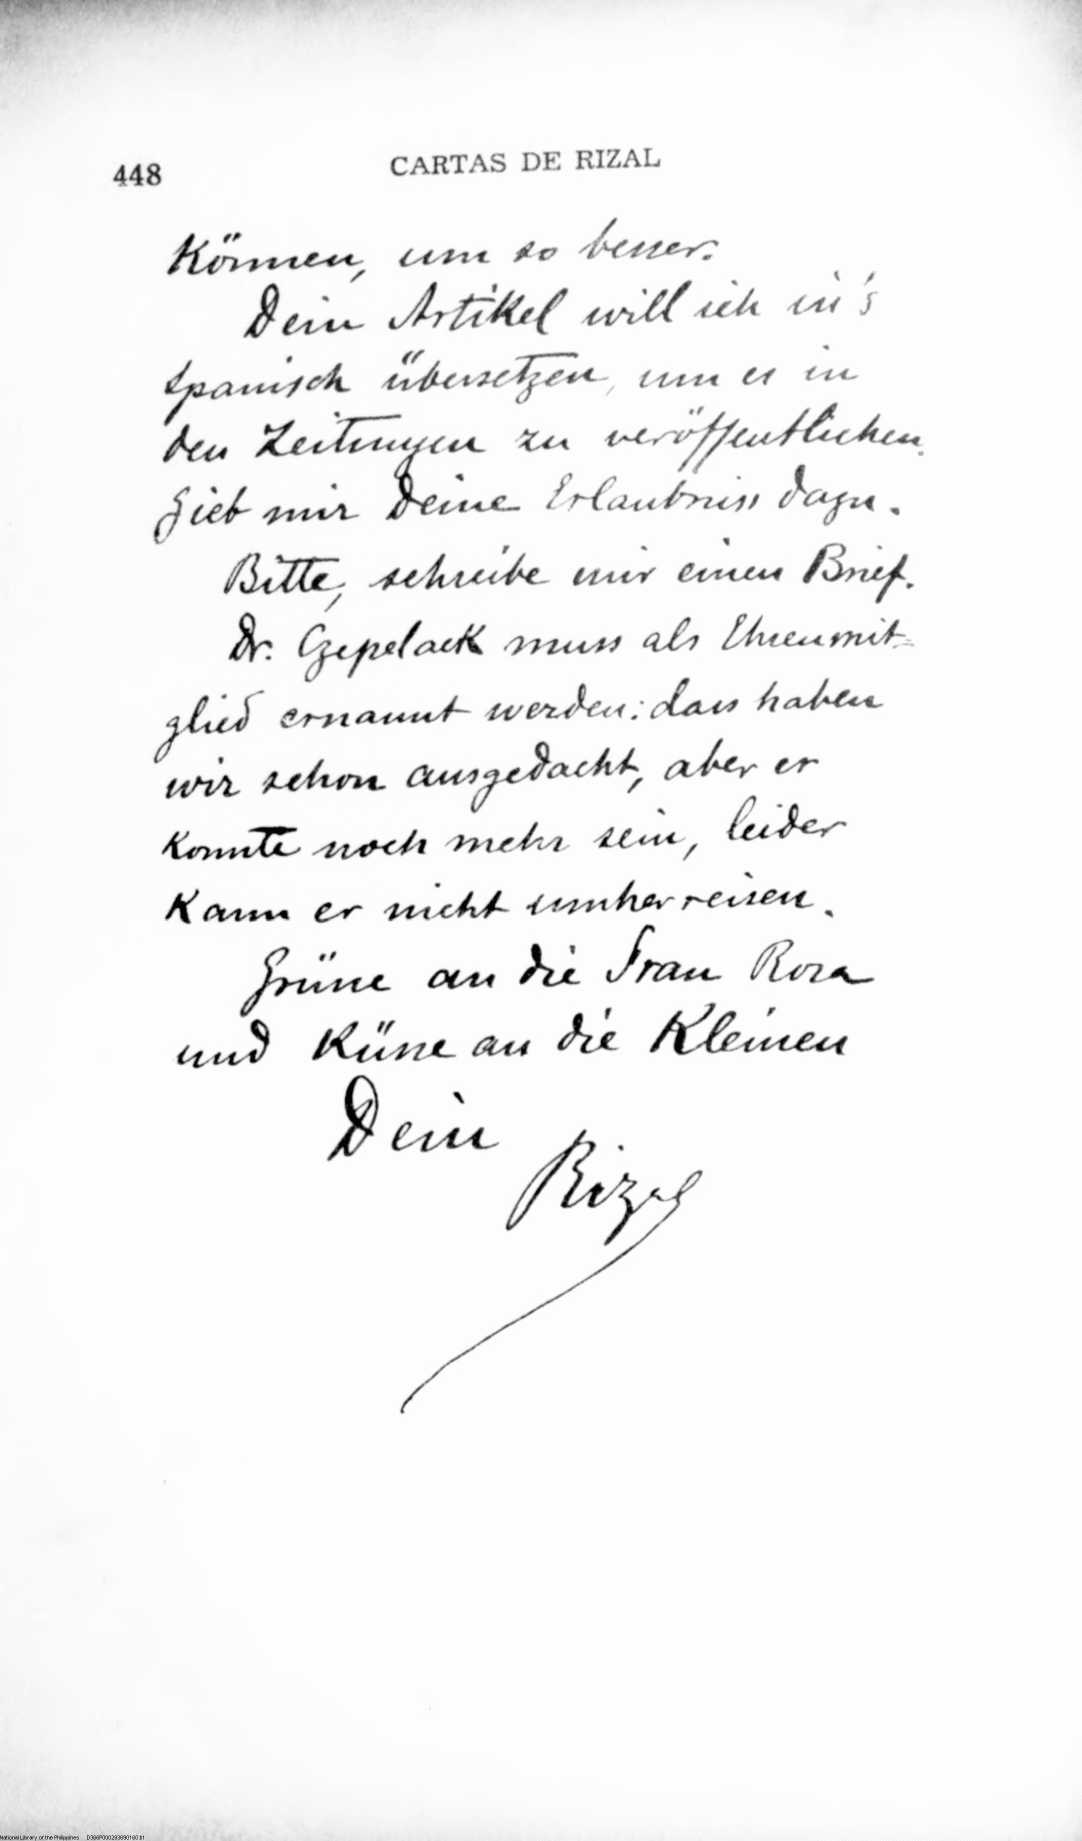 448 CARTAS DE RIZAL
Können, um so besser.
Dein Artikel will ich in's
Spanisch übersetzen, um es in
den Zeitungen zu veröffentlichen.
Gieb mir Deine Erlaubniss dazu.
Bitte, schreibe mir einen Brief.
Dr. Czepelack muss als Ehrenmit=
glied ernannt werden: dass haben
wir schon ausgedacht, aber er
konnte noch mehr sein, leider
kann er nicht umherreisen.
Grüsse an die Frau Rosa
und Küsse an die Kleinen
Dein
Rizal
National Library of the Philippines